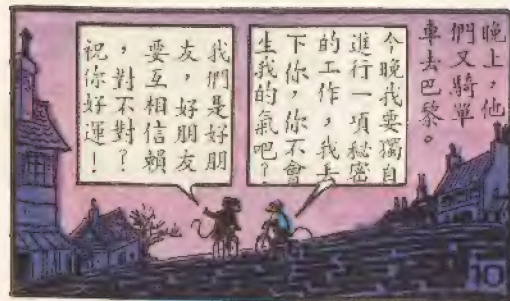 晚上，他
們又騎單
車去巴黎。
今晚我要獨自
進行一項秘密
的工作，我丢
下你，你不會
生我的氣吧？
我們是好朋
友，好朋友
要互相信賴
，對不對？
祝你好運！
10